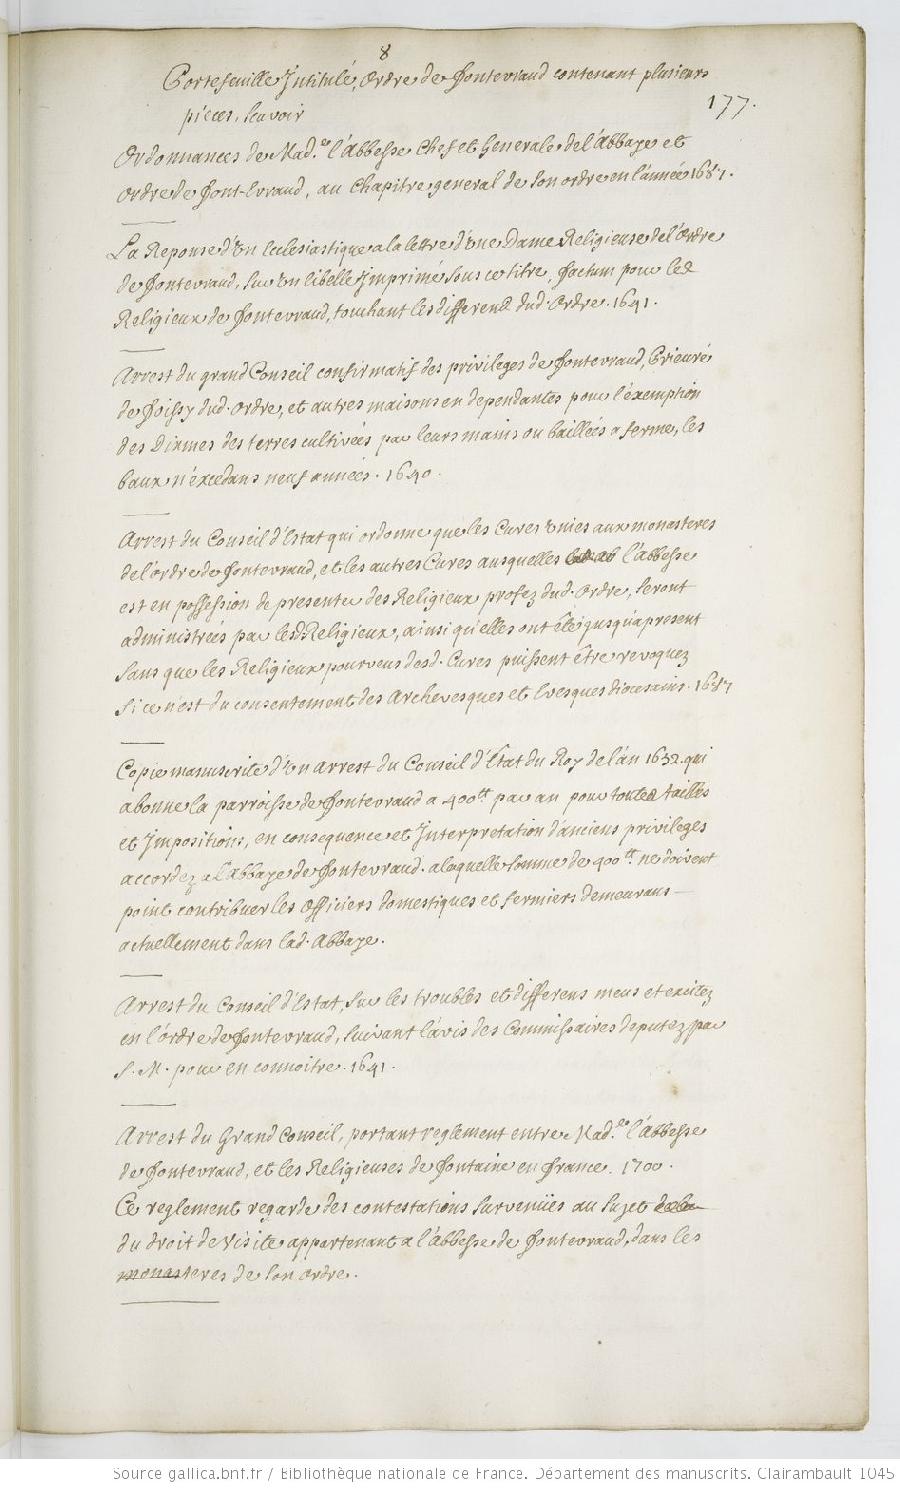 8
Portefeuille Intitulé, Ordre de Fontevraud contenant plusieurs
177.
pieces, scavoir
Ordonnances de Mad.e l'Abbesse Chef et Generale de l'Abbaye et
Ordre de Font-Evraud, au Chapitre general de son ordre en l'année 1687.
La Reponse d'un Ecclesiastique a la lettre d'une Dame Religieuse de l'Ordre
de Fontevraud, sur un libelle Imprimé sous ce titre, factum pour les
Religieux de Fontevraud, touchant les differens dud. Ordre. 1641.
Arrest du grand Conseil confirmatif des privileges de Fontevraud, Prieuré
de Poissy dud. ordre, et autres maisons en dependantes pour l'exemption
des Dixmes des terres cultivées par leurs mains ou baillées a ferme, les
baux n'éxcedans neuf années. 1640.
Arrest du Conseil d'Estat qui ordonne que les Cures unies aux monasteres
de l'ordre de Fontevraud, et les autres Cures ausquelles l'abbesse
est en possession de presenter des Religieux profez dud. Ordre, seront
administrées par lesd Religieux, ainsi qu'elles ont été jusqu'a present
sans que les Religieux pourveus desd. Cures puissent être revoquez
si ce n'est du consentement des Archevesques et Evesques diocesains. 1687
Copie manuscrite d'un arrest du Conseil d'État du Roy de l'an 1632. qui
abonne la parroisse de Fontevraud a 400tt par an pour toutes tailles
et Impositions, en consequence et Interpretation d'anciens privileges
accordez a l'Abbaye de Fontevraud. a laquelle somme de 400tt ne doivent
point contribuer les Officiers domestiques et fermiers demeurans
actuellement dans lad. Abbaye.
Arrest du Conseil d'Estat, sur les troubles et differens meus et excitez
en l'Ordre de Fontevraud, suivant l'avis des Commissaires deputez par
S. M. pour en connoitre. 1641.
Arrest du Grand Conseil, portant reglement entre Mad.e l'Abbesse
de Fontevraud, et les Religieuses de Fontaine en france. 1700.
Ce reglement regarde des contestations survenües au sujet de la
du droit de visite appartenant a l'abbesse de Fontevraud, dans les
monasteres de son ordre.
Source gallica.bnf.fr / Bibliothèque nationale de France. Département des manuscrits. Clairambault 1045